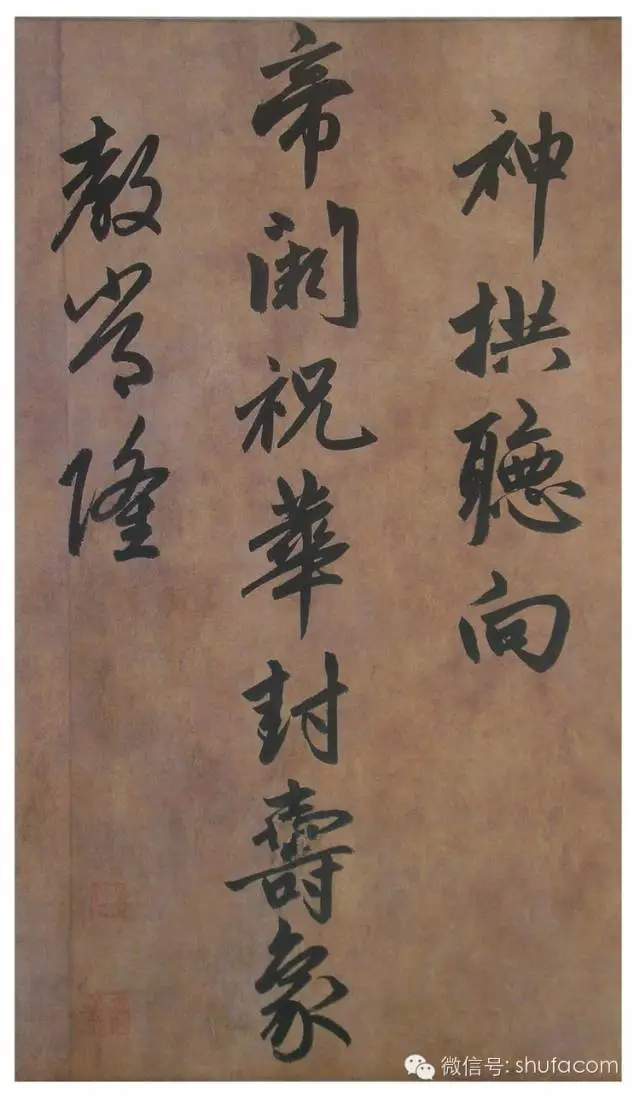 神拱聽向
帝闕祝華封壽象
教常隆
微信号: shufacom